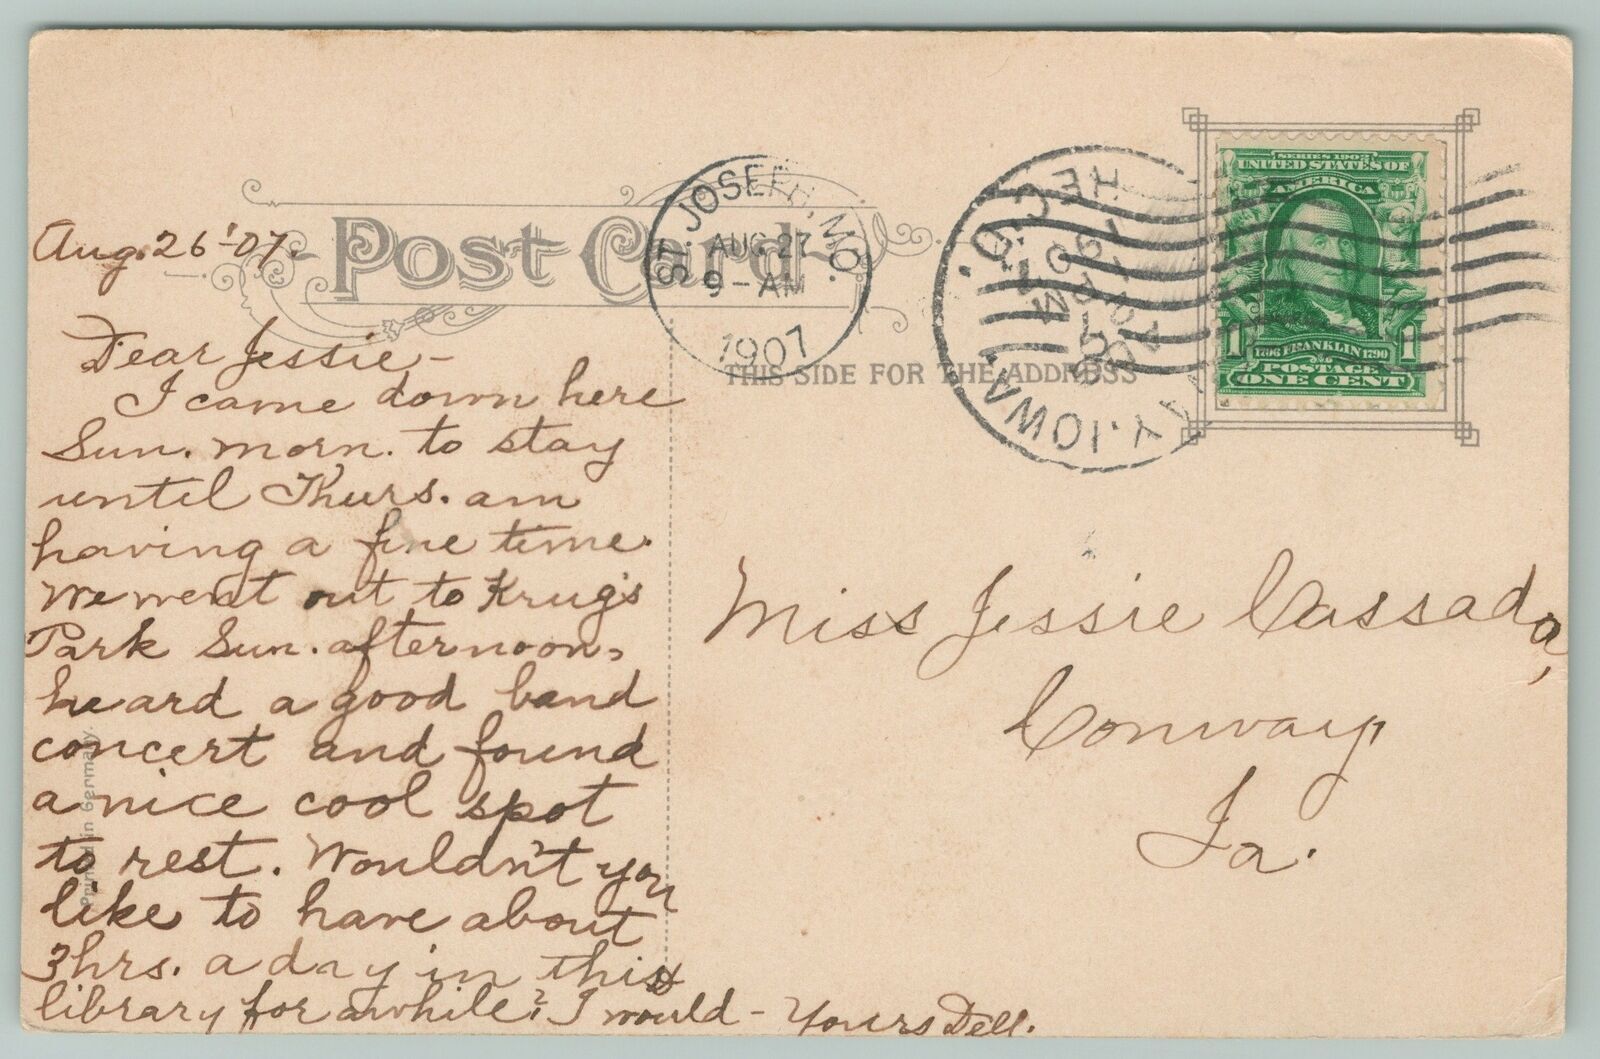 Aug. 26 '07.
Post Card
ST. JOSEPH, MO.
AUG. 27
9-AM
1907
THIS SIDE FOR THE ADDRESS
REC'D.
1907
PM
AUG
CONWAY. IOWA.
SERIES 1902
UNITED STATES OF
AMERICA
1706 FRANKLIN 1790
1 1
POSTAGE
ONE CENT
Dear Jessie-
I came down here
Sun. morn. to stay
until Thurs. am
having a fine time.
We went out to Krug's
Park Sun. afternoon,
heard a good band
concert and found
a nice cool spot
to rest. Wouldn't you
like to have about
3 hrs. a day in this
library for awhile? I would - Yours Dell.
Printed in Germany
Miss Jessie Cassada,
Conway,
Ia.